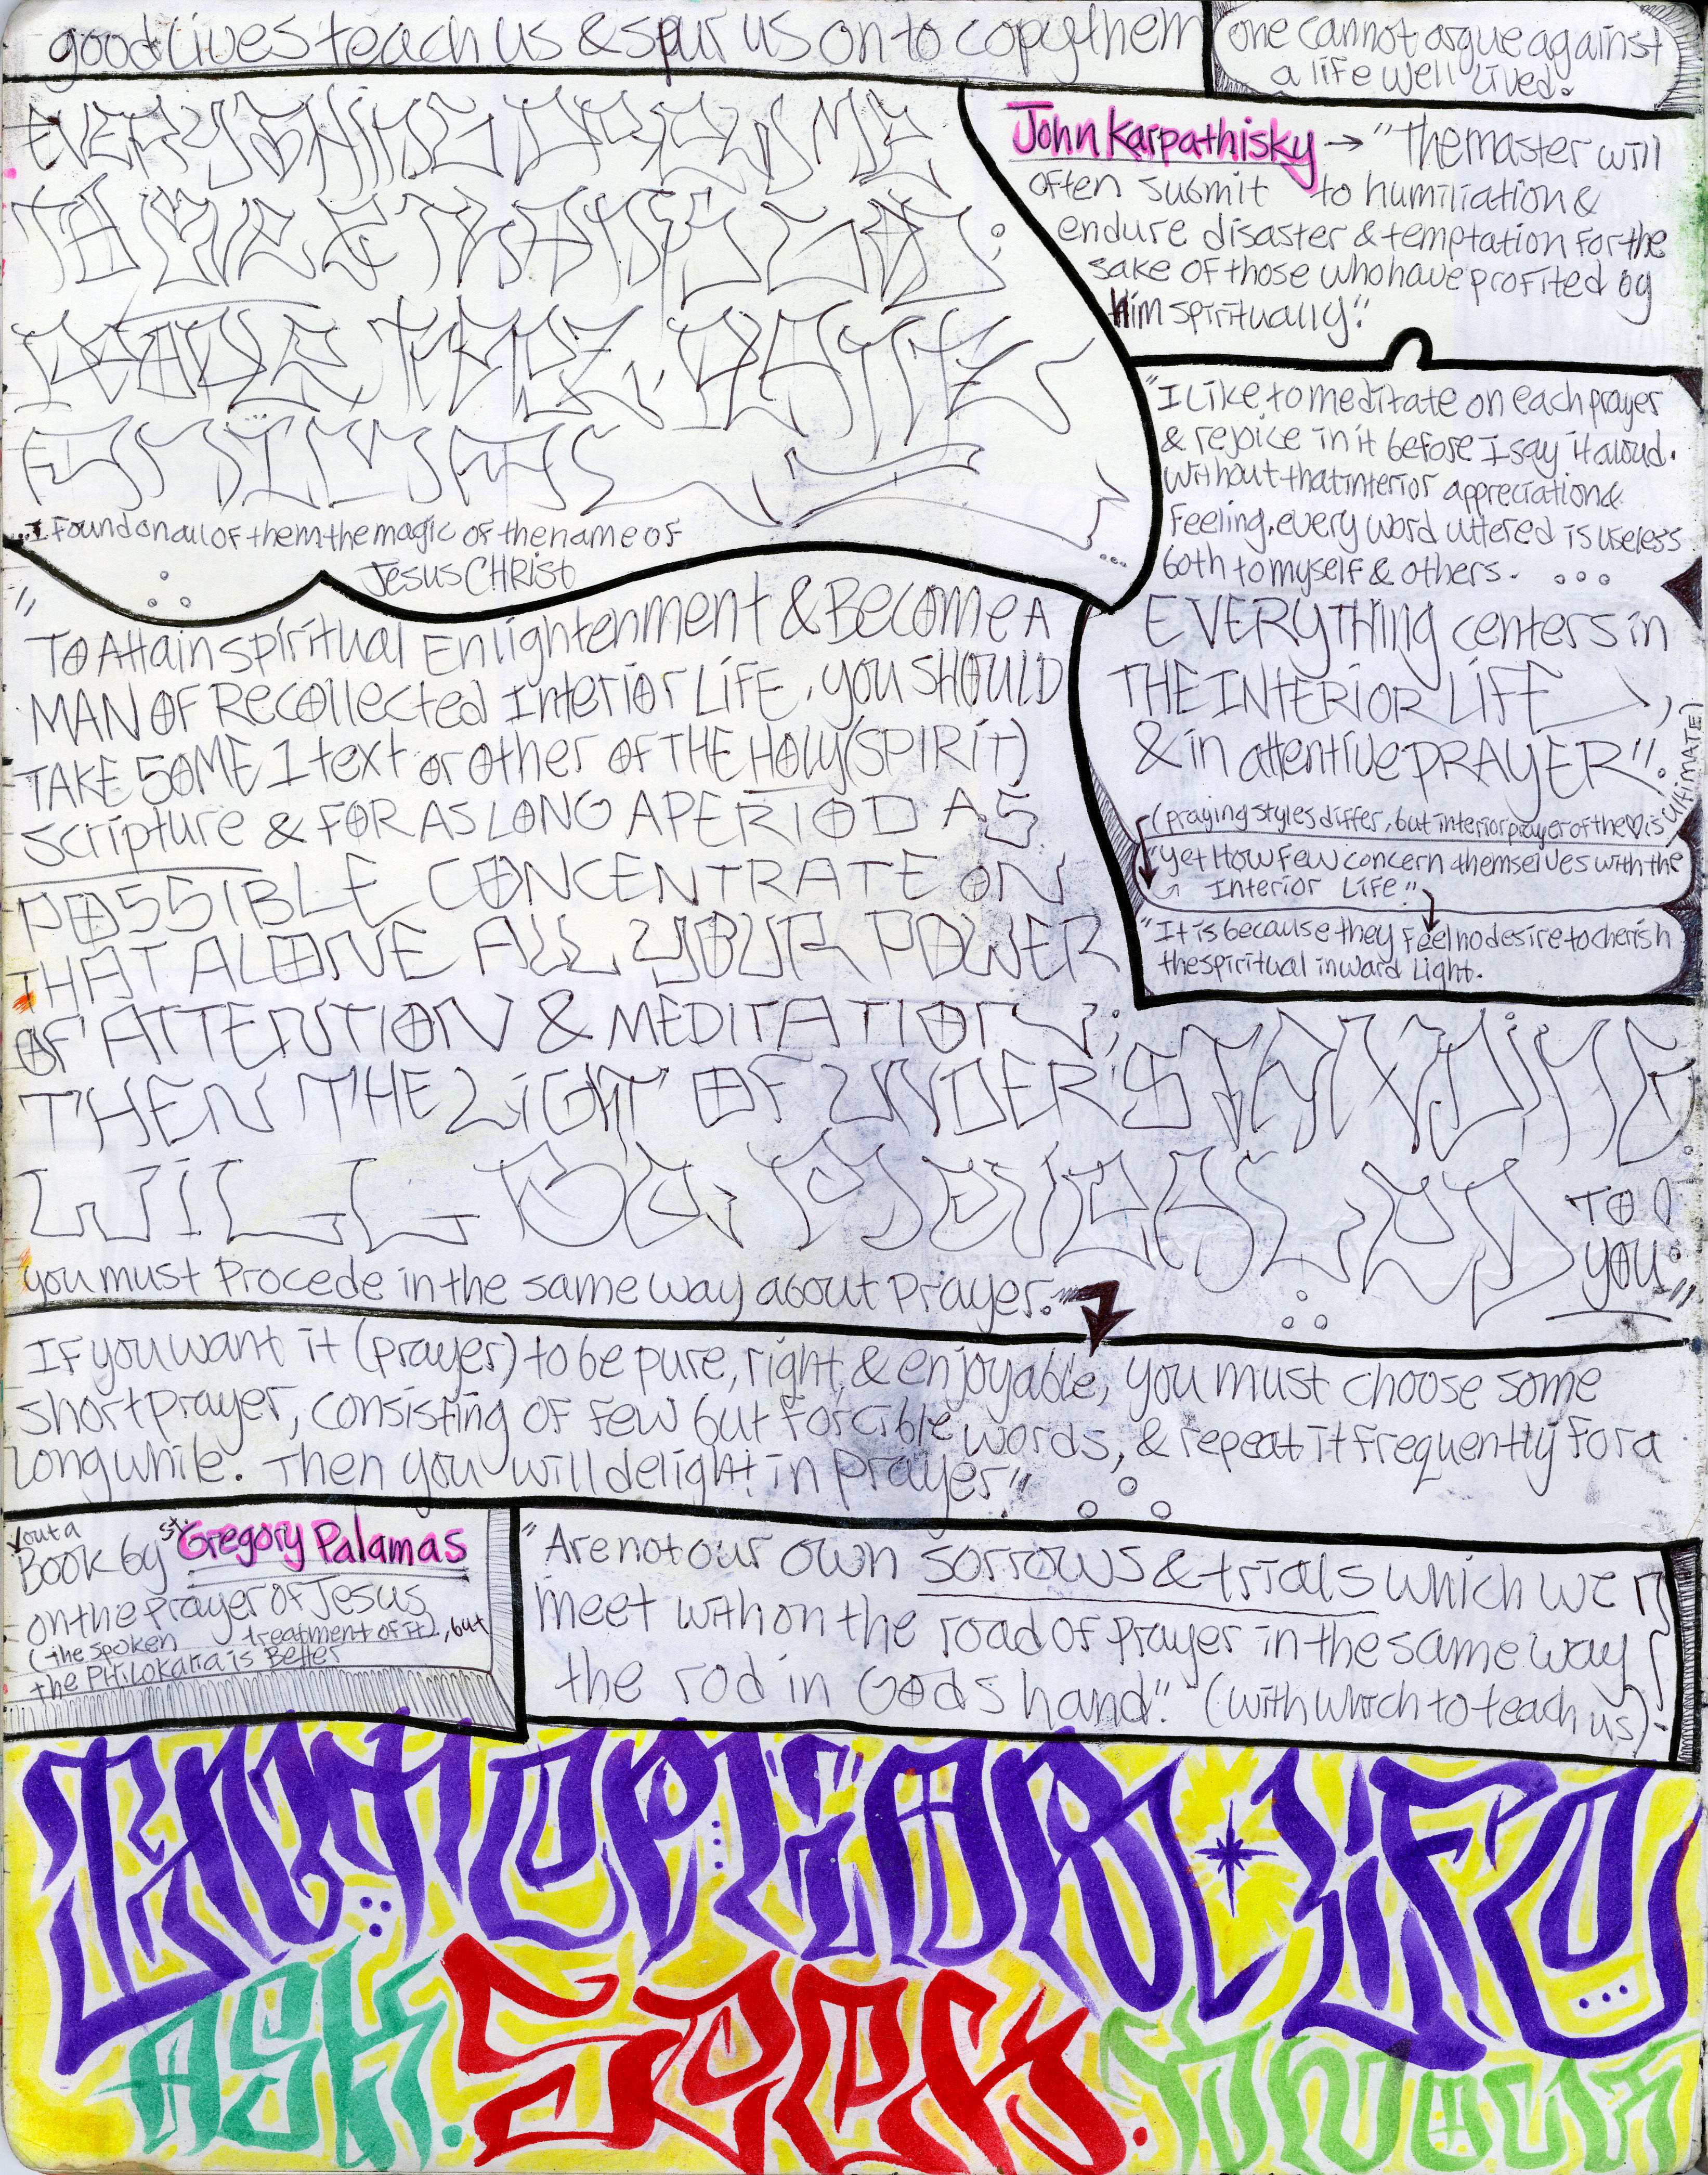 good lives teach us & spur us on to copy them
one cannot argue against
a life well lived.
EVERYTHING DREW ME
TO LOVE & THANK GOD;
PEOPLE, TREEZ, PLANTZ,
ANIMALS
...I found on all of them the magic of the name of
Jesus CHRist
John Karpathisky → "The master will
often submit to humiliation &
endure disaster & temptation for the
sake of those who have profited by
him spiritually".
"I Like to meditate on each prayer
& rejoice in it before I say it aloud.
without that interior appreciation &
feeling, every word uttered is useless
both to myself & others. ...
EVERYTHING centers in
THE INTERIOR LIFE,
& in attentive PRAYER".
(praying styles differ, but interior prayer of the ♡ is ULtiMATE)
"yet How Few concern themselves with the
Interior Life."
"It is because they feel no desire to cherish
the spiritual inward Light.
"TO Attain spiritual Enlightenment & Become A
MAN OF Recollected Interior LiFE, you SHOULD
TAKE SOME 1 text or other of THE HOLY (SPIRIT)
Scripture & FOR AS LONG A PERIOD AS
POSSIBLE CONCENTRATE ON
THAT ALONE ALL YOUR POWER
OF ATTENTION & MEDITATION;
THEN THE LIGHT OF UNDERSTANDING
WILL BE REVEALED TO
YOU."
you must Procede in the same way about Prayer.
If you want it (prayer) to be pure, right, & enjoyable, you must choose some
short prayer, consisting of few but forcible words, & repeat it frequently for a
long while. Then you will delight in Prayer"
out a
Book by St. Gregory Palamas
on the Prayer of Jesus
(the spoken treatment of it), but
the PHiLOKalia is Better
"Are not our own sorrows & trials which we
meet with on the road of prayer in the same way
the rod in GOds hand". (with which to teach us)
INTERIOR LIFE
ASK. SEEK. KNOCK